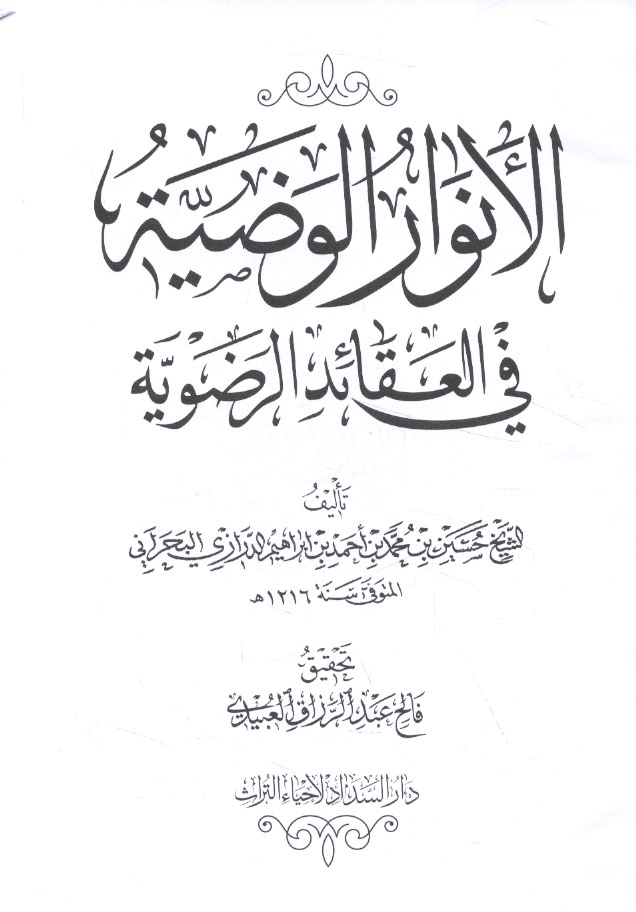 الأنوار الوضية
في العقائد الرضوية
تأليف
الشيخ حسين بن محمد بن أحمد بن إبراهيم الدرازي البحراني
المتوفى سنة ١٢١٦ هـ
تحقيق
فالح عبد الرزاق العبيدي
دار السداد لإحياء التراث